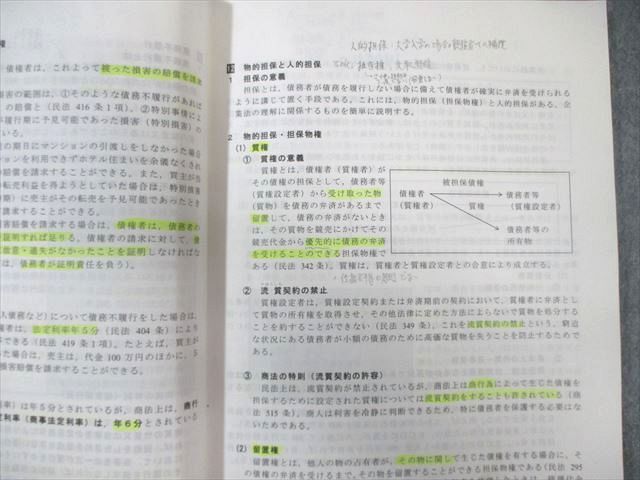 権
債権者は、これによって被った損害の賠償を請求
損害の範囲は、①そのような債務不履行があれば
(民法 416 条 1 項)、②特別事情によ
履行期に予見可能であった損害(特別損害)の
の期日にマンションの引渡しをしなかった場合
ションを利用できずホテル住まいを余儀なくされ
請求することができる。また、買主が
転売利益を得ようとしていた場合は、特別損害
期)に売主がその転売を予見可能であったとき
請求することができる。
損害賠償を請求する場合は、債権者は、債務者の
証明すれば足りる。債権者の請求に対して、債
故意・過失がなかったことを証明しなければな
は、債務者が証明責任を負う)。
人債務など)について債務不履行をした場合は、
法定利率年5分(民法 404 条)により
(民法 419 条 1 項)。たとえば、買主が
売主は、代金 100 万円のほかに、5
損害賠償を請求することができる。
は年5分とされているが、商法上は、商行
法定利率(商事法定利率)は、年6分とされている
人的担保：
12 物的担保と人的担保
1 担保の意義
担保とは、債務者が債務を履行しない場合に備えて債権者が確実に弁済を受けられる
ように講じて置く手段である。これには、物的担保(担保物権)と人的担保がある。企
業法の理解に関係するものを簡単に説明する。
2 物的担保・担保物権
(1) 質権
① 質権の意義
質権とは、債権者(質権者)が
その債権の担保として、債務者等
(質権設定者)から受け取った物
(質物)を債務の弁済があるまで
留置して、債務の弁済がないとき
は、その質物を競売にかけてその
競売代金から優先的に債務の弁済
を受けることのできる担保物権で
ある(民法 342 条)。質権は、質権者と質権設定者との合意により成立する。
被担保債権
債権者 債務者等
(質権者) 質権 (質権設定者)
債務者等の
所有物
② 流質契約の禁止
質権設定者は、質権設定契約または弁済期前の契約において、質権者に弁済とし
て質物の所有権を取得させ、その他法律に定めた方法によらないで質物を処分する
ことを約することができない(民法 349 条)。これを流質契約の禁止という。窮迫
な状況にある債務者が小額の債務のために高価な質物を失うことを防止するためで
ある。
③ 商法の特則(流質契約の許容)
民法上は、流質契約が禁止されているが、商法上は商行為によって生じた債権を
担保するために設定された質権については流質契約をすることも許されている(商
法 515 条)。商人は利害を冷静に判断できるため、特に債務者を保護する必要はな
いためである。
(2) 留置権
留置権とは、他人の物の占有者が、その物に関して生じた債権を有する場合に、そ
の債権の弁済を受けるまで、その物を留置することができる担保物権である(民法 295